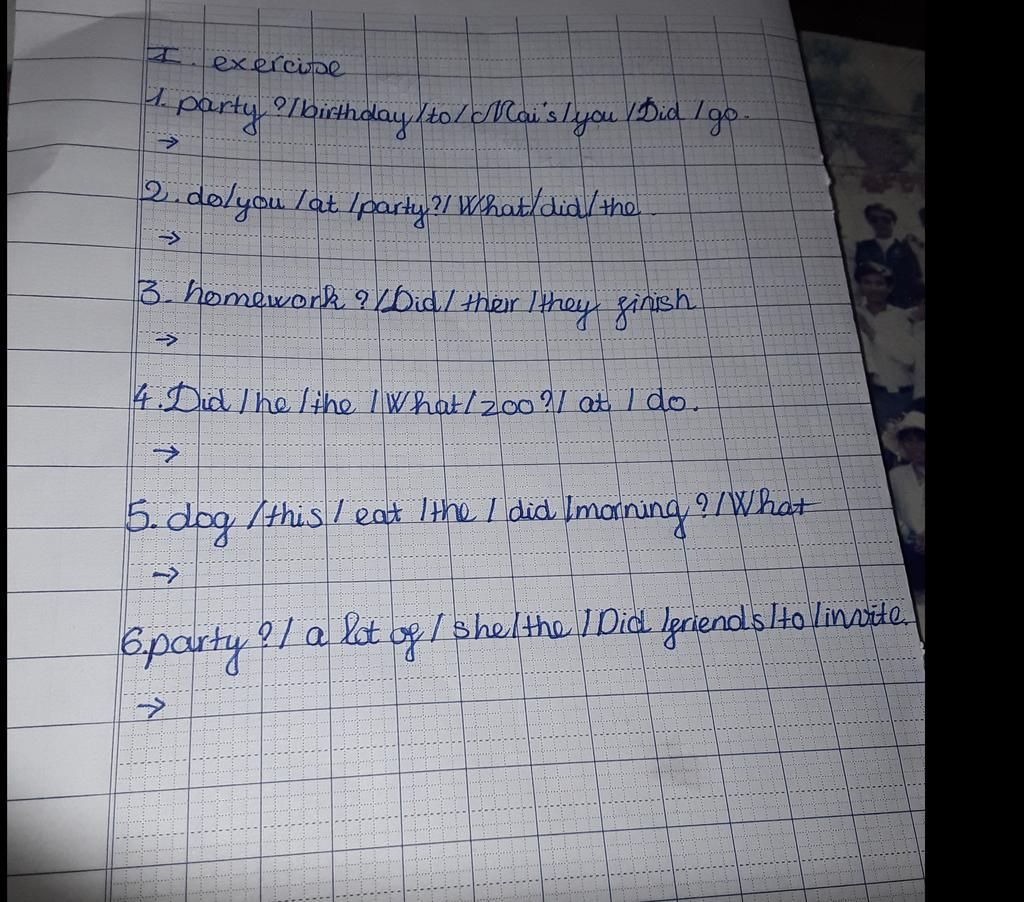 I. exercise
1. party ?/birthday/to/Mai's/you/Did/go.
→
2. do/you/at/party?/What/did/the.
→
3. homework ?/Did/their/they finish
→
4. Did/he/the/What/zoo?/at/do.
→
5. dog/this/eat/the/did/morning?/What
→
6. party ?/a lot of/she/the/Did/friends/to/invite.
→